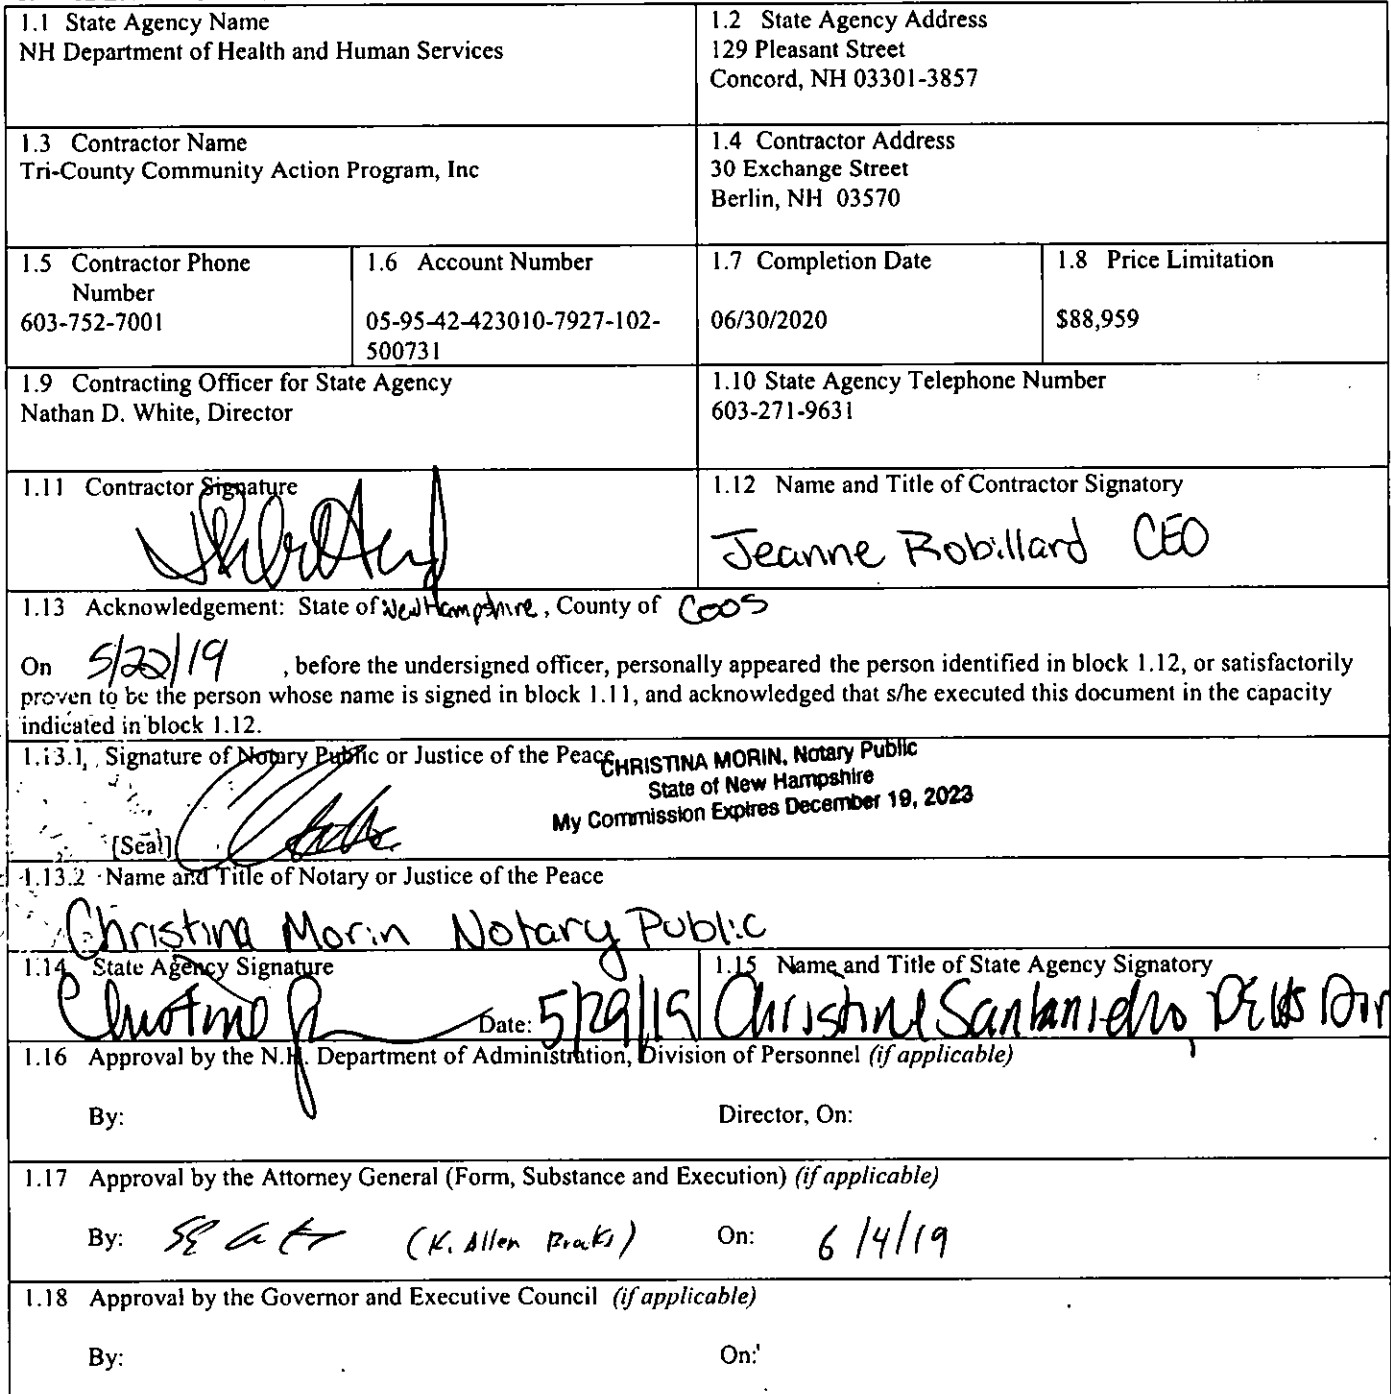 1.1 State Agency Name
NH Department of Health and Human Services
1.2 State Agency Address
129 Pleasant Street
Concord, NH 03301-3857
1.3 Contractor Name
Tri-County Community Action Program, Inc
1.4 Contractor Address
30 Exchange Street
Berlin, NH 03570
1.5 Contractor Phone
Number
603-752-7001
1.6 Account Number
05-95-42-423010-7927-102-
500731
1.7 Completion Date
06/30/2020
1.8 Price Limitation
$88,959
1.9 Contracting Officer for State Agency
Nathan D. White, Director
1.10 State Agency Telephone Number
603-271-9631
1.11 Contractor Signature
1.12 Name and Title of Contractor Signatory
Jeanne Robillard CEO
1.13 Acknowledgement: State of New Hampshire, County of Coos
On 5/22/19 , before the undersigned officer, personally appeared the person identified in block 1.12, or satisfactorily
proven to be the person whose name is signed in block 1.11, and acknowledged that s/he executed this document in the capacity
indicated in block 1.12.
1.13.1 Signature of Notary Public or Justice of the Peace
CHRISTINA MORIN, Notary Public
State of New Hampshire
My Commission Expires December 19, 2023
[Seal]
1.13.2 Name and Title of Notary or Justice of the Peace
Christina Morin Notary Public
1.14 State Agency Signature
Date: 5/29/19
1.15 Name and Title of State Agency Signatory
Christine Santaniello,
1.16 Approval by the N.H. Department of Administration, Division of Personnel (if applicable)
By: Director, On:
1.17 Approval by the Attorney General (Form, Substance and Execution) (if applicable)
By: (K. Allen Brooks) On: 6/4/19
1.18 Approval by the Governor and Executive Council (if applicable)
By: On: